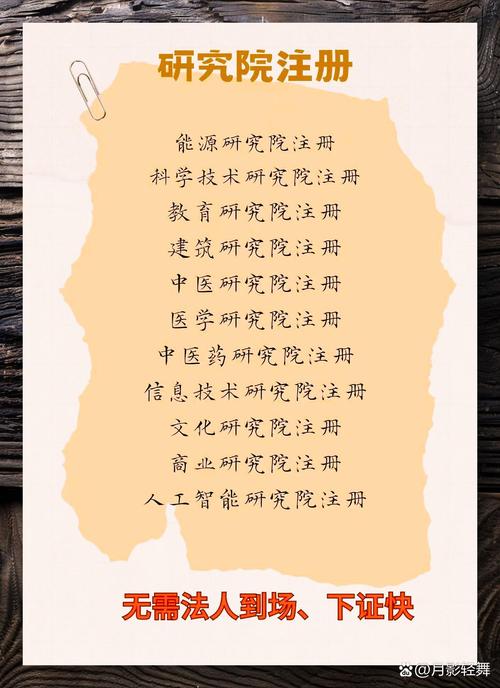 研究院注册
能源研究院注册
科学技术研究院注册
教育研究院注册
建筑研究院注册
中医研究院注册
医学研究院注册
中医药研究院注册
信息技术研究院注册
文化研究院注册
商业研究院注册
人工智能研究院注册
无需法人到场、下证快
@月影轻舞